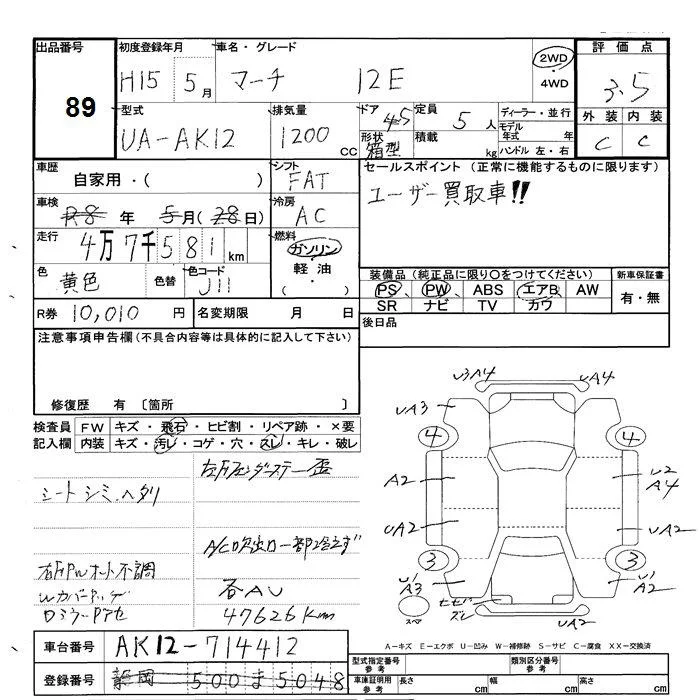 出品番号 初度登録年月 車名・グレード 評価点
89 H15 5月 マーチ 12E 2WD・4WD 3.5
型式 排気量 ドア 定員 ディーラー・並行 外装 内装
UA-AK12 1200cc 45 5人 モデル年式 年 C C
形状 箱型 積載 kg ハンドル 左・右
車歴 シフト セールスポイント (正常に機能するものに限ります)
自家用・( ) FAT ユーザー買取車!!
車検 冷房
R8年 5月(28日) AC
走行 燃料
4万7千581km ガソリン・軽油・( )
色 色替 色コード 装備品 (純正品に限り○をつけてください) 新車保証書
黄色 J11 PS PW ABS エアB AW 有・無
SR ナビ TV カワ
R券 10,010円 名変期限 月 日 後日品
注意事項申告欄(不具合内容等は具体的に記入して下さい)
修復歴 有 〔箇所 〕
検査員 FW キズ・飛石・ヒビ割・リペア跡・×要
記入欄 内装 キズ・汚レ・コゲ・穴・スレ・キレ・破レ
シートシミ、ヘタリ
A/C吹出口一部冷えず
右FPWオート不調
各AU
47626Km
U3A4 UA4
UA3
4 4
A2 U2 A4
UA2 UA2
3 3
U1 A3 U1 A2
スペ ヒビ UA2
A-キズ E-エクボ U-凹み W-補修跡 S-サビ C-腐食 XX-交換済
車台番号 AK12-714412
登録番号 静岡 500 ま 5048
型式指定番号 参考 類別区分番号 参考
車庫証明用 参考 長さ cm 幅 cm 高さ cm